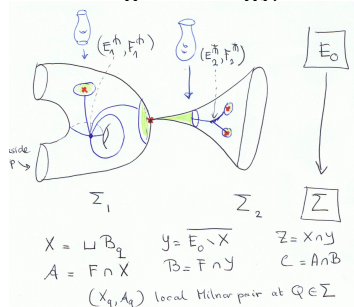 (E₁^ℏ, F₁^ℏ) (E₂^ℏ, F₂^ℏ) E₀
side
p
Σ₁ Σ₂ Σ
X = ⊔ B_q Y = \overline{E₀ \ X} Z = X ∩ Y
A = F ∩ X B = F ∩ Y C = A ∩ B
(X_q, A_q) local Milnor pair at Q ∈ Σ